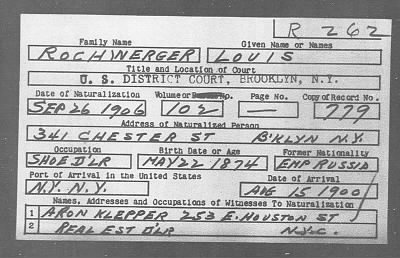 R 262
Family Name Given Name or Names
ROCHWERGER LOUIS
Title and Location of Court
U. S. DISTRICT COURT, BROOKLYN, N.Y.
Date of Naturalization Volume or Bundle No. Page No. Copy of Record No.
SEP 26 1906 102 — 779
Address of Naturalized Person
341 CHESTER ST B'KLYN N.Y.
Occupation Birth Date or Age Former Nationality
SHOE D'LR MAY 22 1874 EMP RUSSIA
Port of Arrival in the United States Date of Arrival
N.Y. N.Y. AUG 15 1900
Names, Addresses and Occupations of Witnesses To Naturalization
1 ARON KLEPPER 253 E. HOUSTON ST
2 REAL EST D'LR N.Y.C.